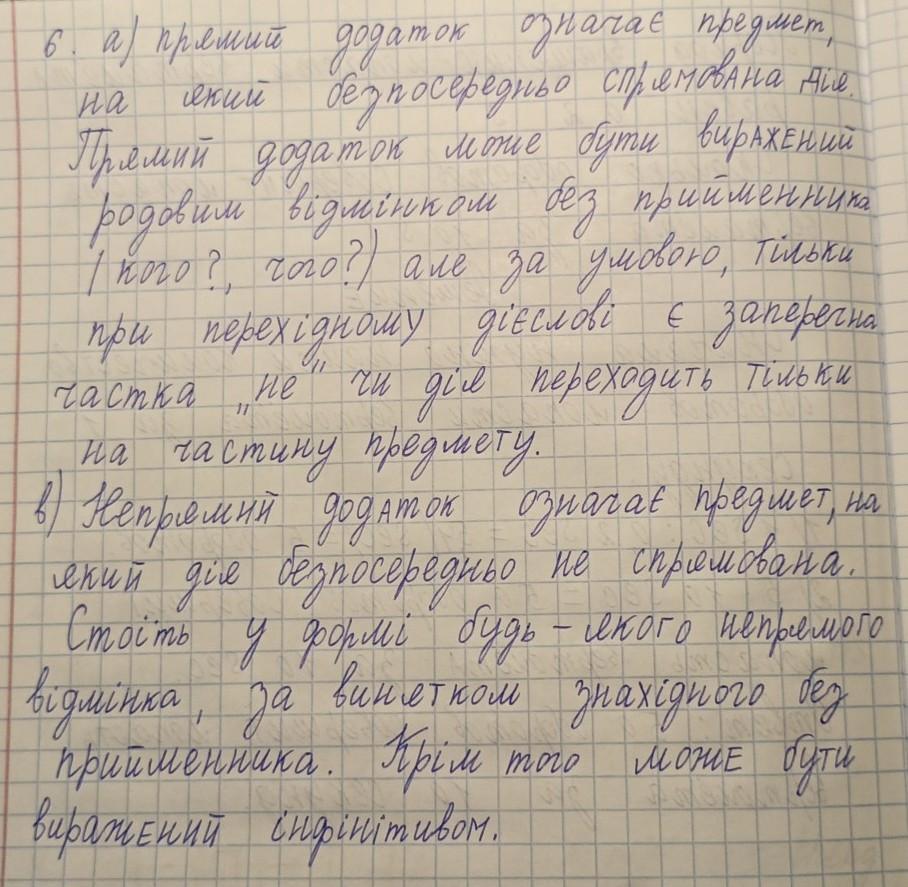 6. а) прямий додаток означає предмет,
на який безпосередньо спрямована дія.
Прямий додаток може бути виражений
родовим відмінком без прийменника
(кого?, чого?) але за умовою, тільки
при перехідному дієслові є заперечна
частка „не" чи дія переходить тільки
на частину предмету.
в) Непрямий додаток означає предмет, на
який дія безпосередньо не спрямована.
Стоїть у формі будь-якого непрямого
відмінка, за винятком знахідного без
прийменника. Крім того може бути
виражений інфінітивом.